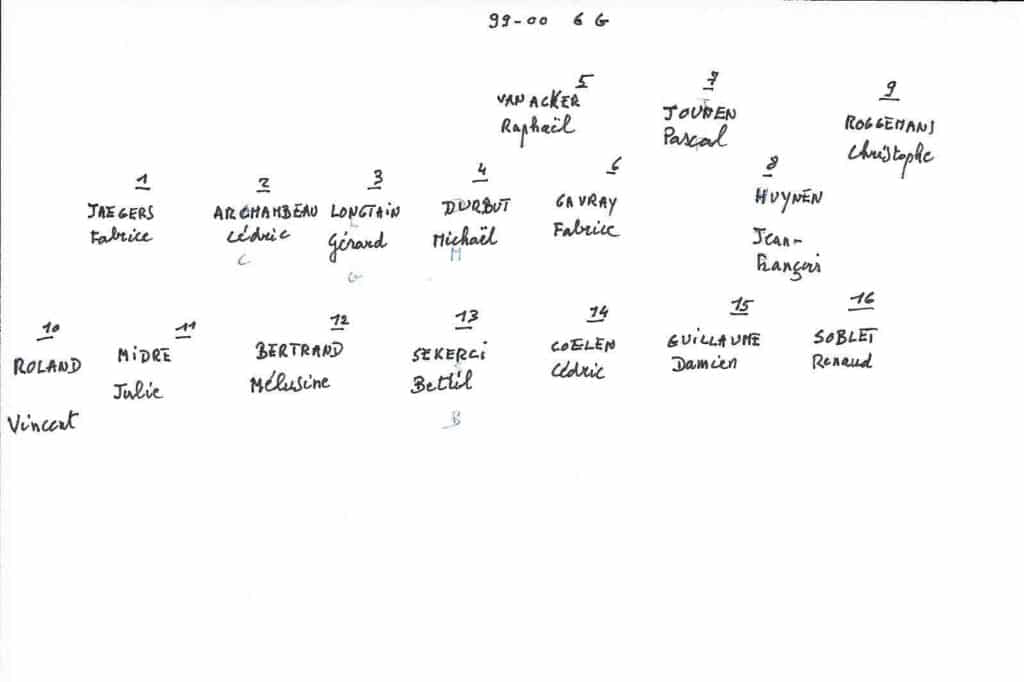 99-00 6 G
5 7 9
VAN ACKER JOUNEN ROGGEMANS
Raphaël Pascal Christophe
1 2 3 4 6 8
JAEGERS ARCHAMBEAU LONGTAIN DURBUT GAVRAY HUYNEN
Fabrice Cédric Gérard Michaël Fabrice Jean-
François
C G M
10 11 12 13 14 15 16
ROLAND MIDRE BERTRAND SEKERCI COELEN GUILLAUME SOBLET
Vincent Julie Mélusine Betül Cédric Damien Renaud
B